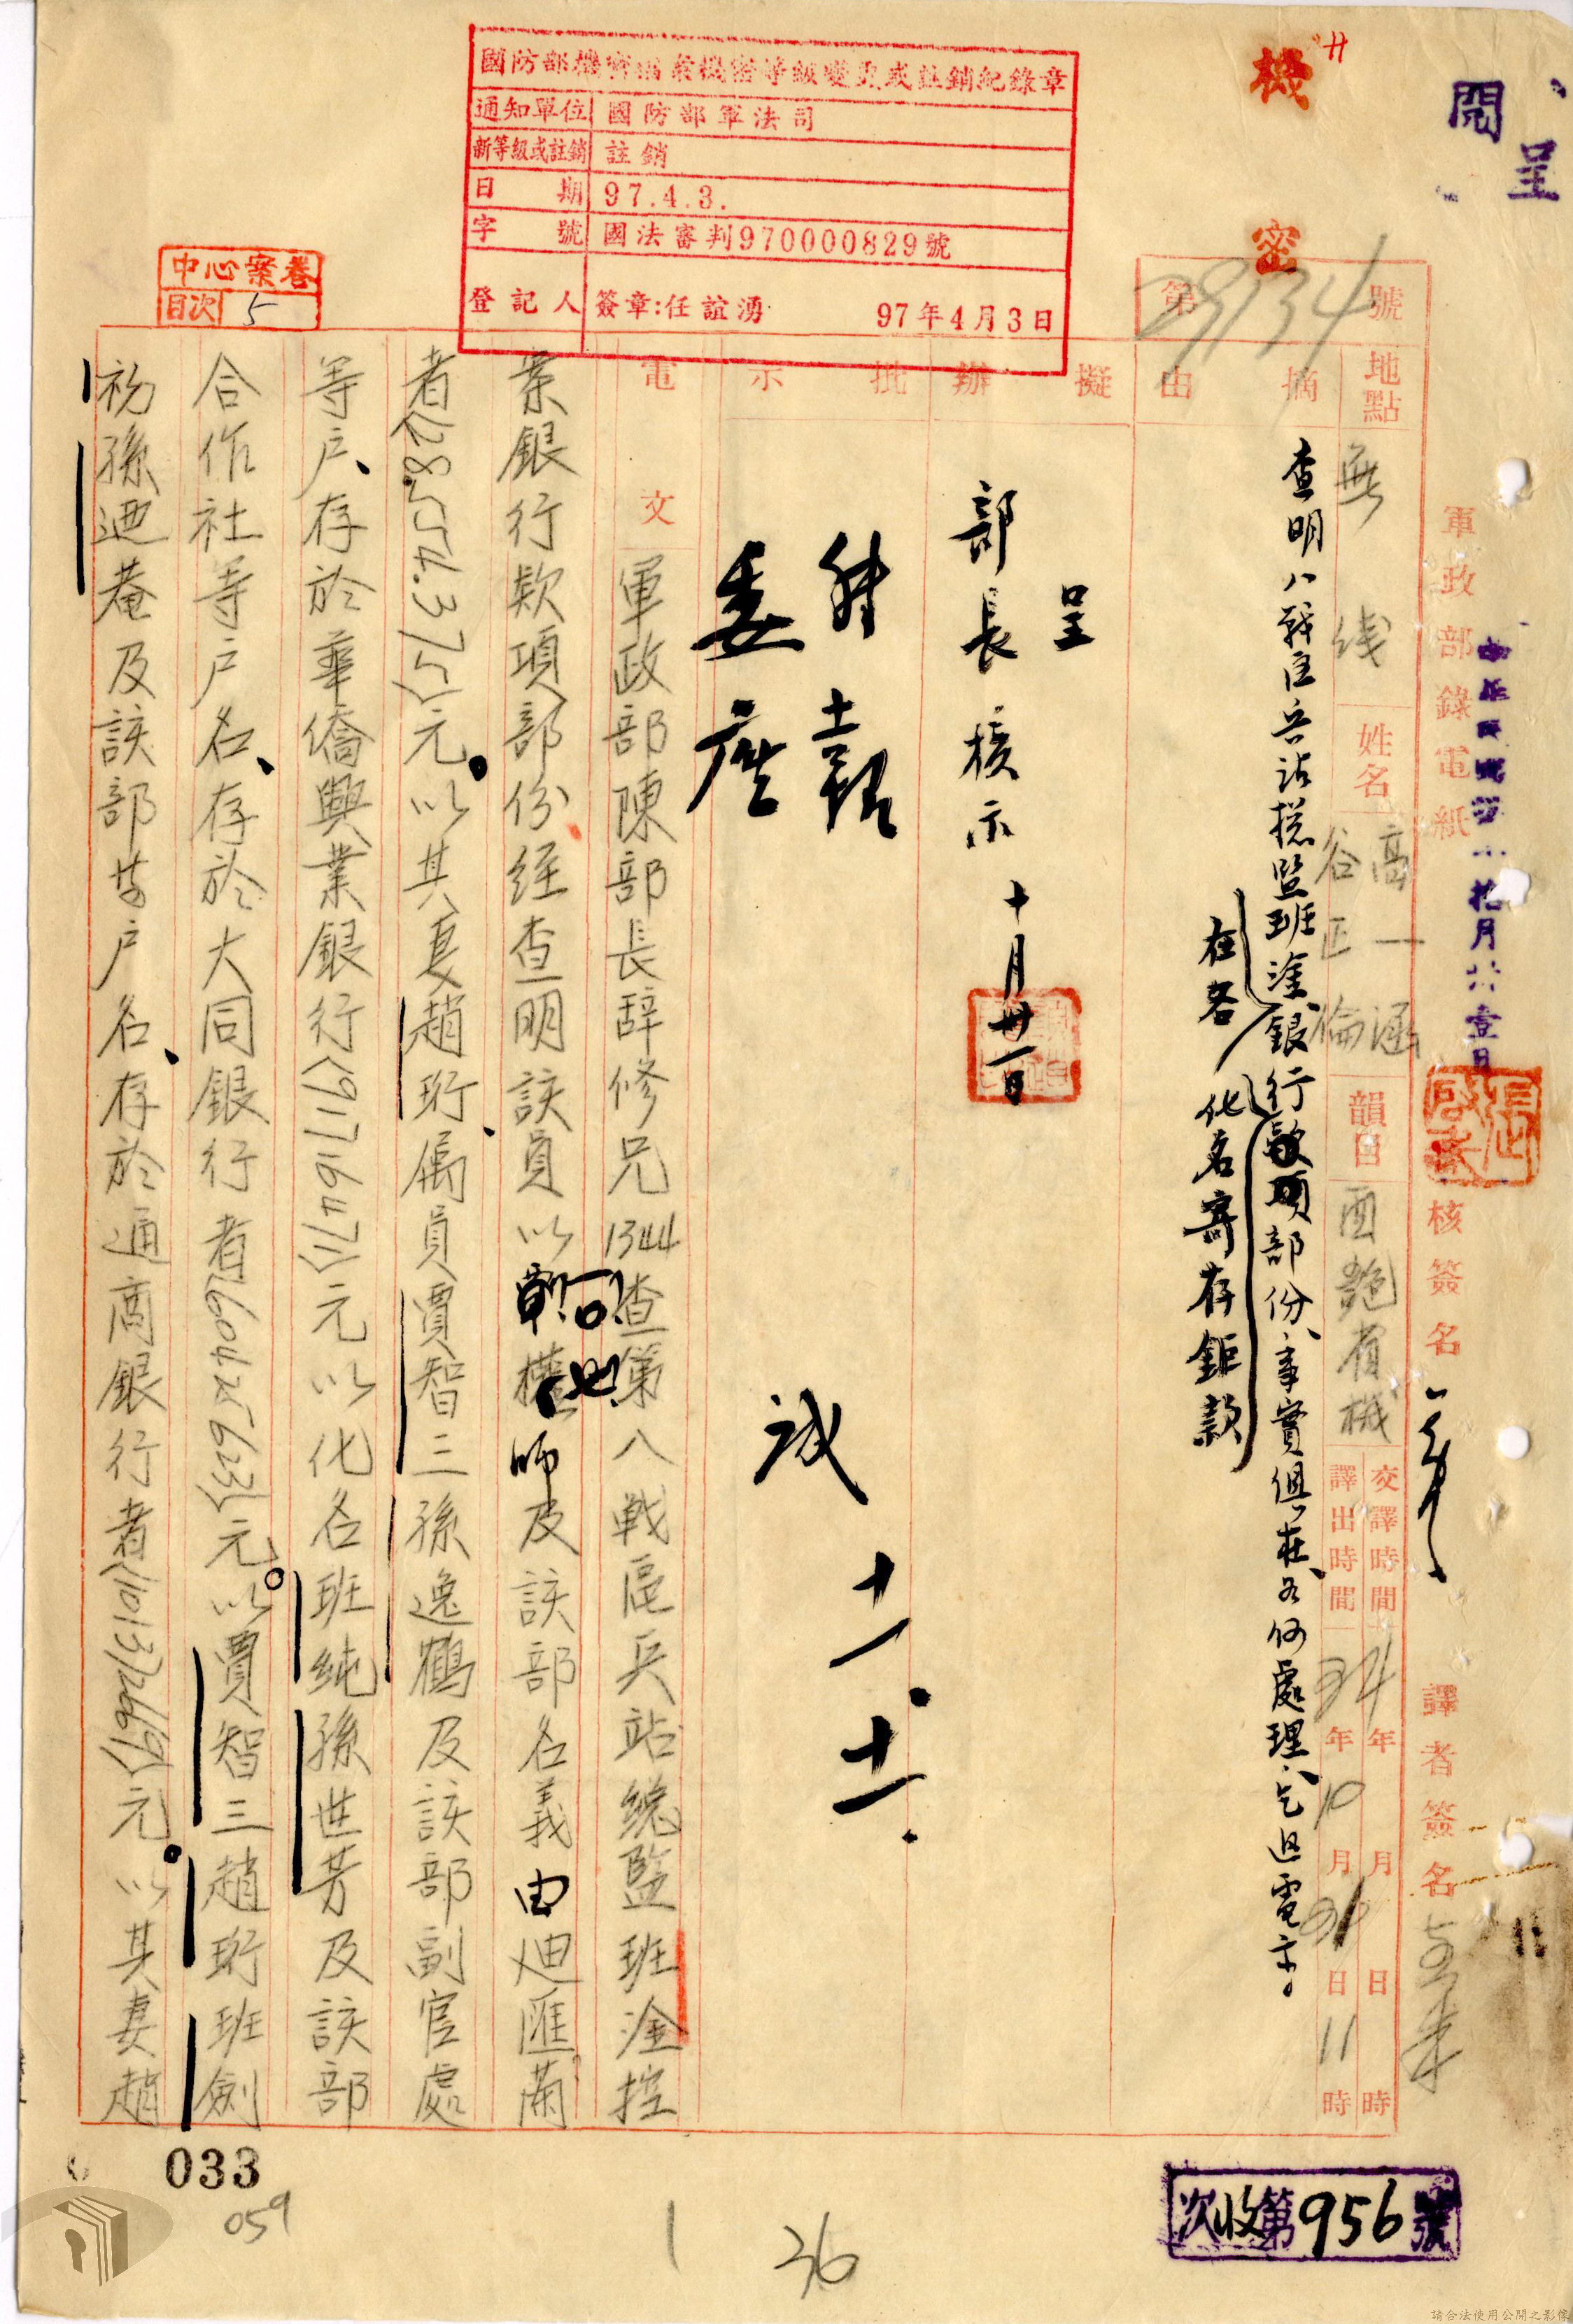 呈
閱
機
密
國防部機密檔案機密等級變更或註銷紀錄章
通知單位 國防部軍法司
新等級或註銷 註銷
日期 97.4.3.
字號 國法審判970000829號
登記人 簽章:任誼湧 97年4月3日
中心案卷
目次 5
軍政部錄電紙
核簽名
譯者簽名
第29134號
地點 無线
姓名 高一涵 谷正倫
韻目 酉艷有機
交譯時間 年 月 日 時
譯出時間 34年10月31日11時
摘由
查明八戰區兵站摠監班淦銀行欵項部份、事實俱在、為何處理、乞迅電示。
在各
化名寄存鉅款
擬辦
呈
部長核示 十月卅一日
批示
委座
誠 十一.十一.
電文
軍政部陳部長辭修兄1344查第八戰區兵站總監班淦控
案銀行欵項部份经查明該員以 師及該部名義由迪匯蘭
者(28554.375)元。以其妻趙珩、属員賈智三孫逸鶴及該部副官處
等户、存於華僑興業銀行(917169471)元以化名班純孫世芳及該部
合作社等户名、存於大同銀行者(60425623)元。以賈智三趙珩班劍
初孫迺菴及該部等户名、存於通商銀行者(101372669)元。以其妻趙
033
059
1
36
次收第956號
請合法使用公開之影像